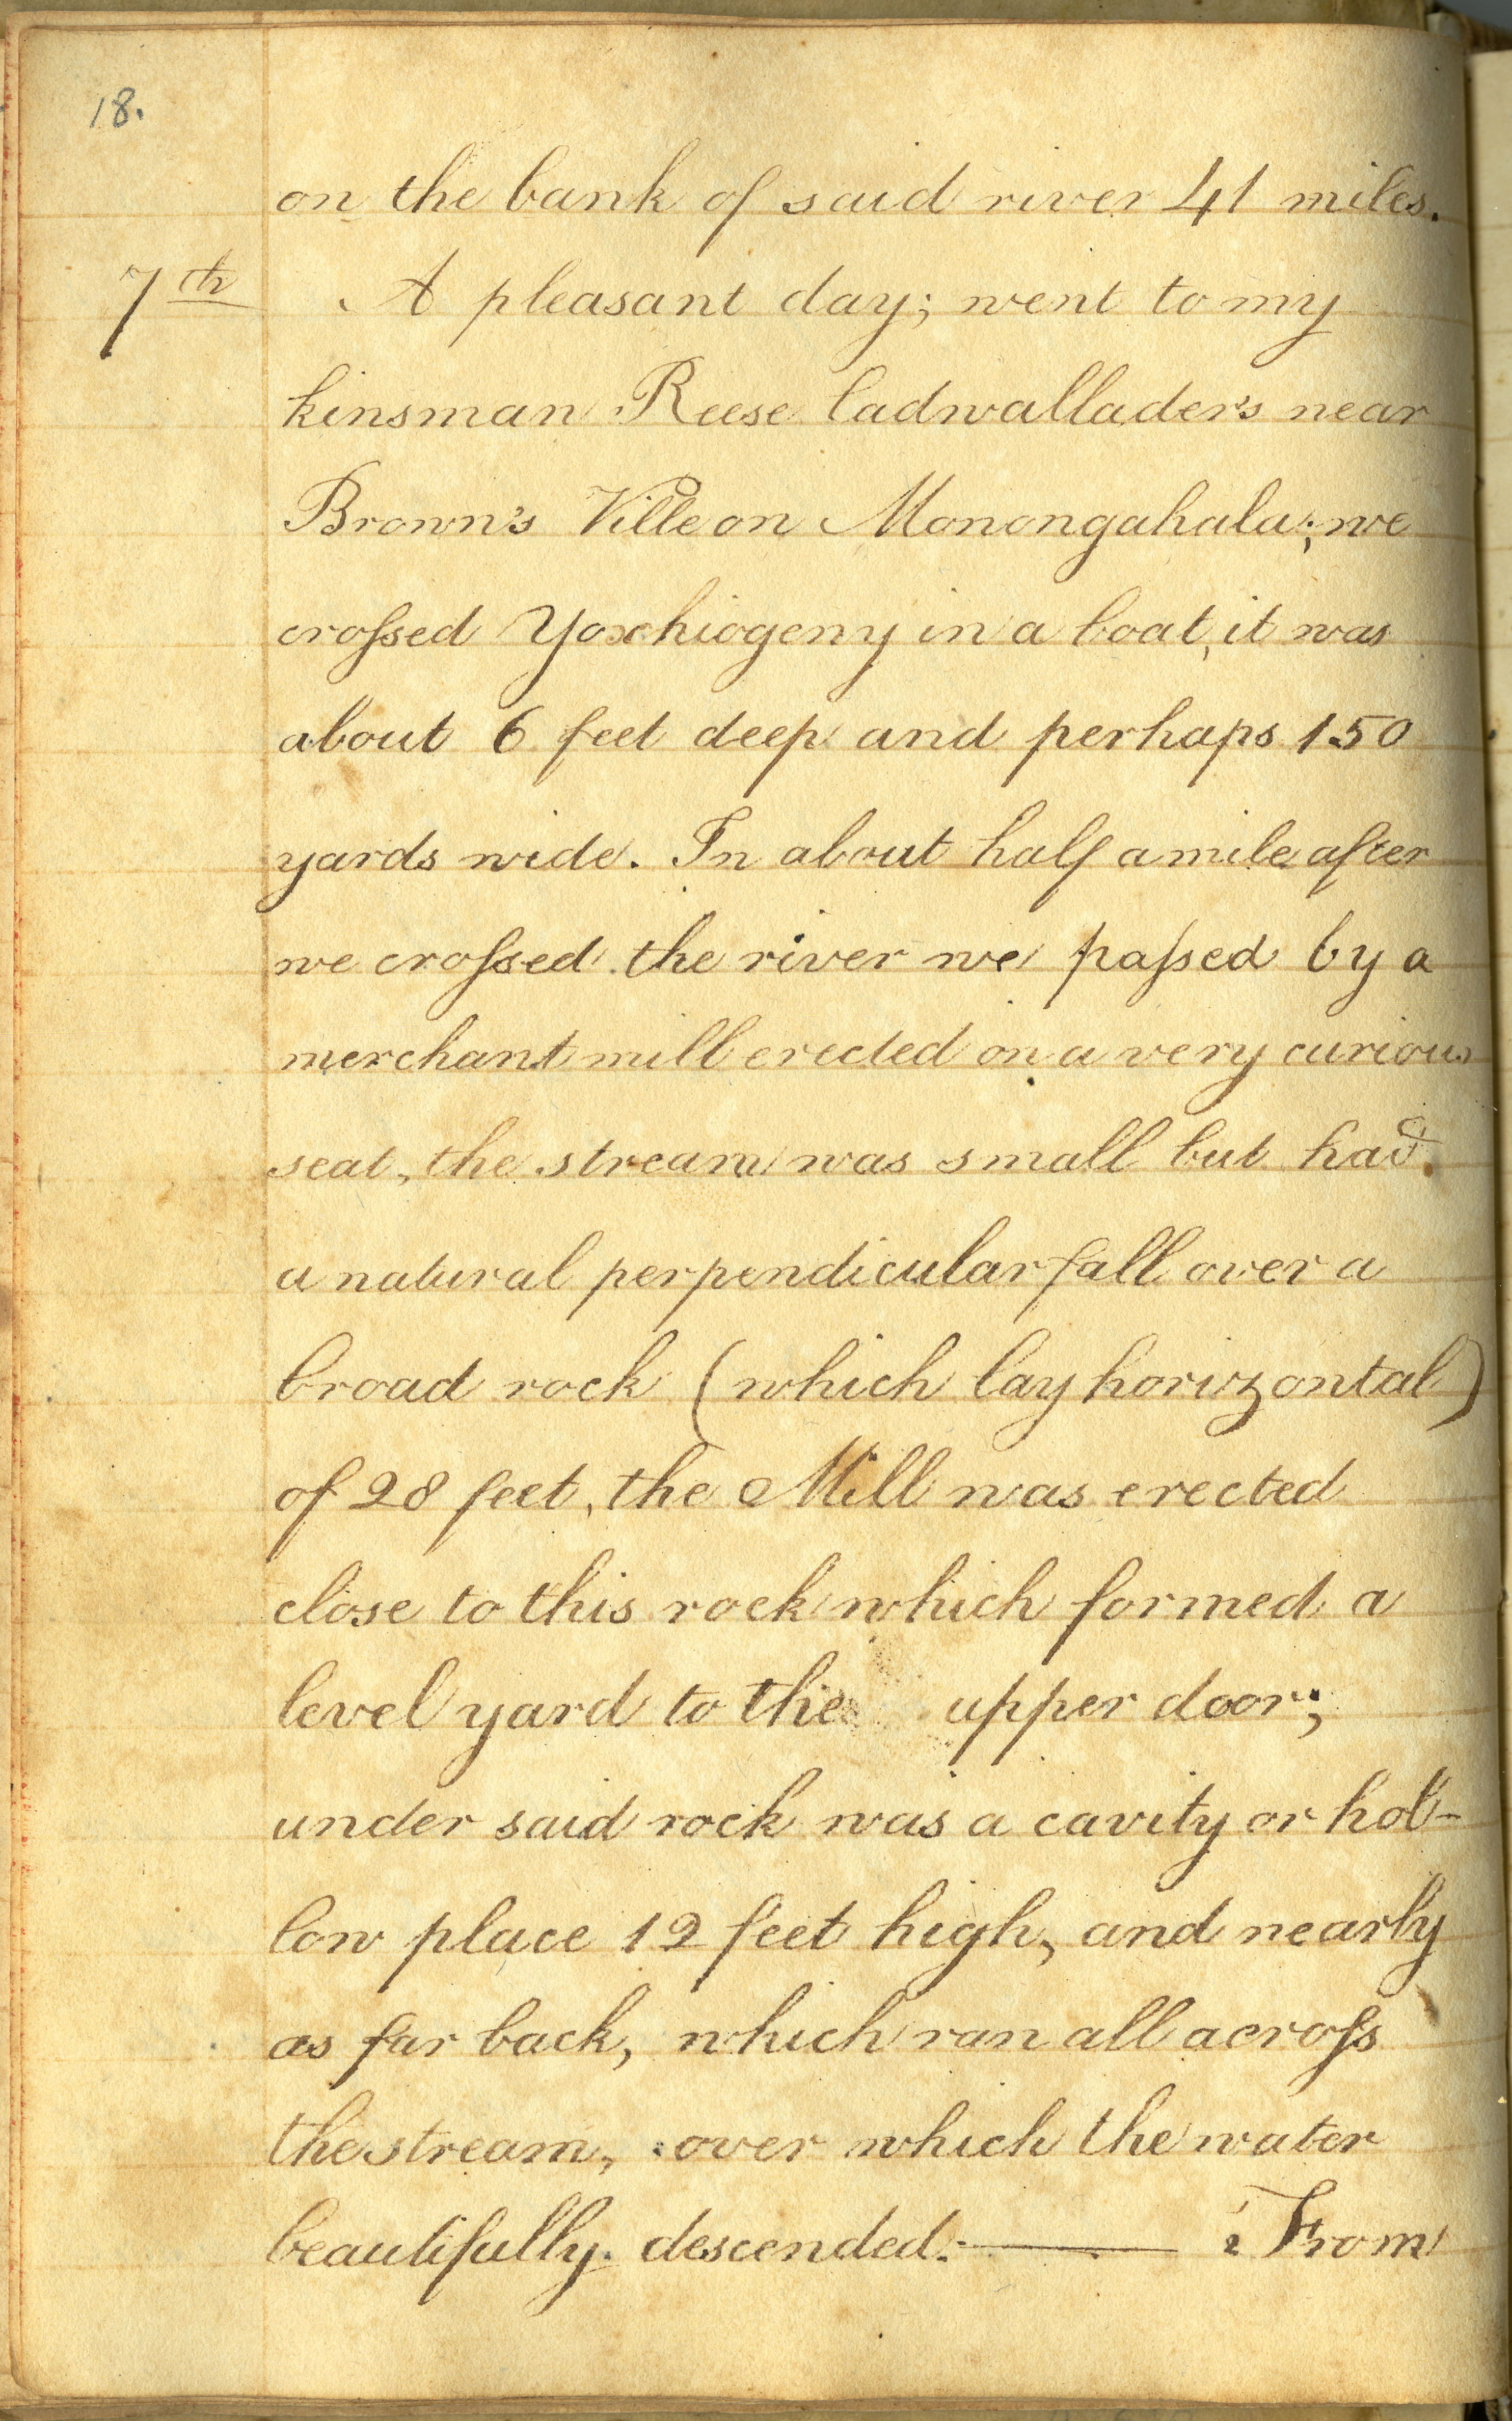 18.
on the bank of said river 41 miles.
7th A pleasant day; went to my
kinsman Reese Cadwalladers near
Brown's Ville on Monongahala; we
croſsed Yoxhiogeny in a boat, it was
about 6 feet deep and perhaps 150
yards wide. In about half a mile after
we croſsed the river we paſsed by a
merchant mill erected on a very curious
seat, the stream was small but had
a natural perpendicular fall over a
broad rock (which lay horizontal)
of 28 feet, the Mill was erected
close to this rock which formed a
level yard to the upper door;
under said rock was a cavity or hol-
low place 12 feet high, and nearly
as far back, which ran all acroſs
the stream, over which the water
beautifully descended. — From